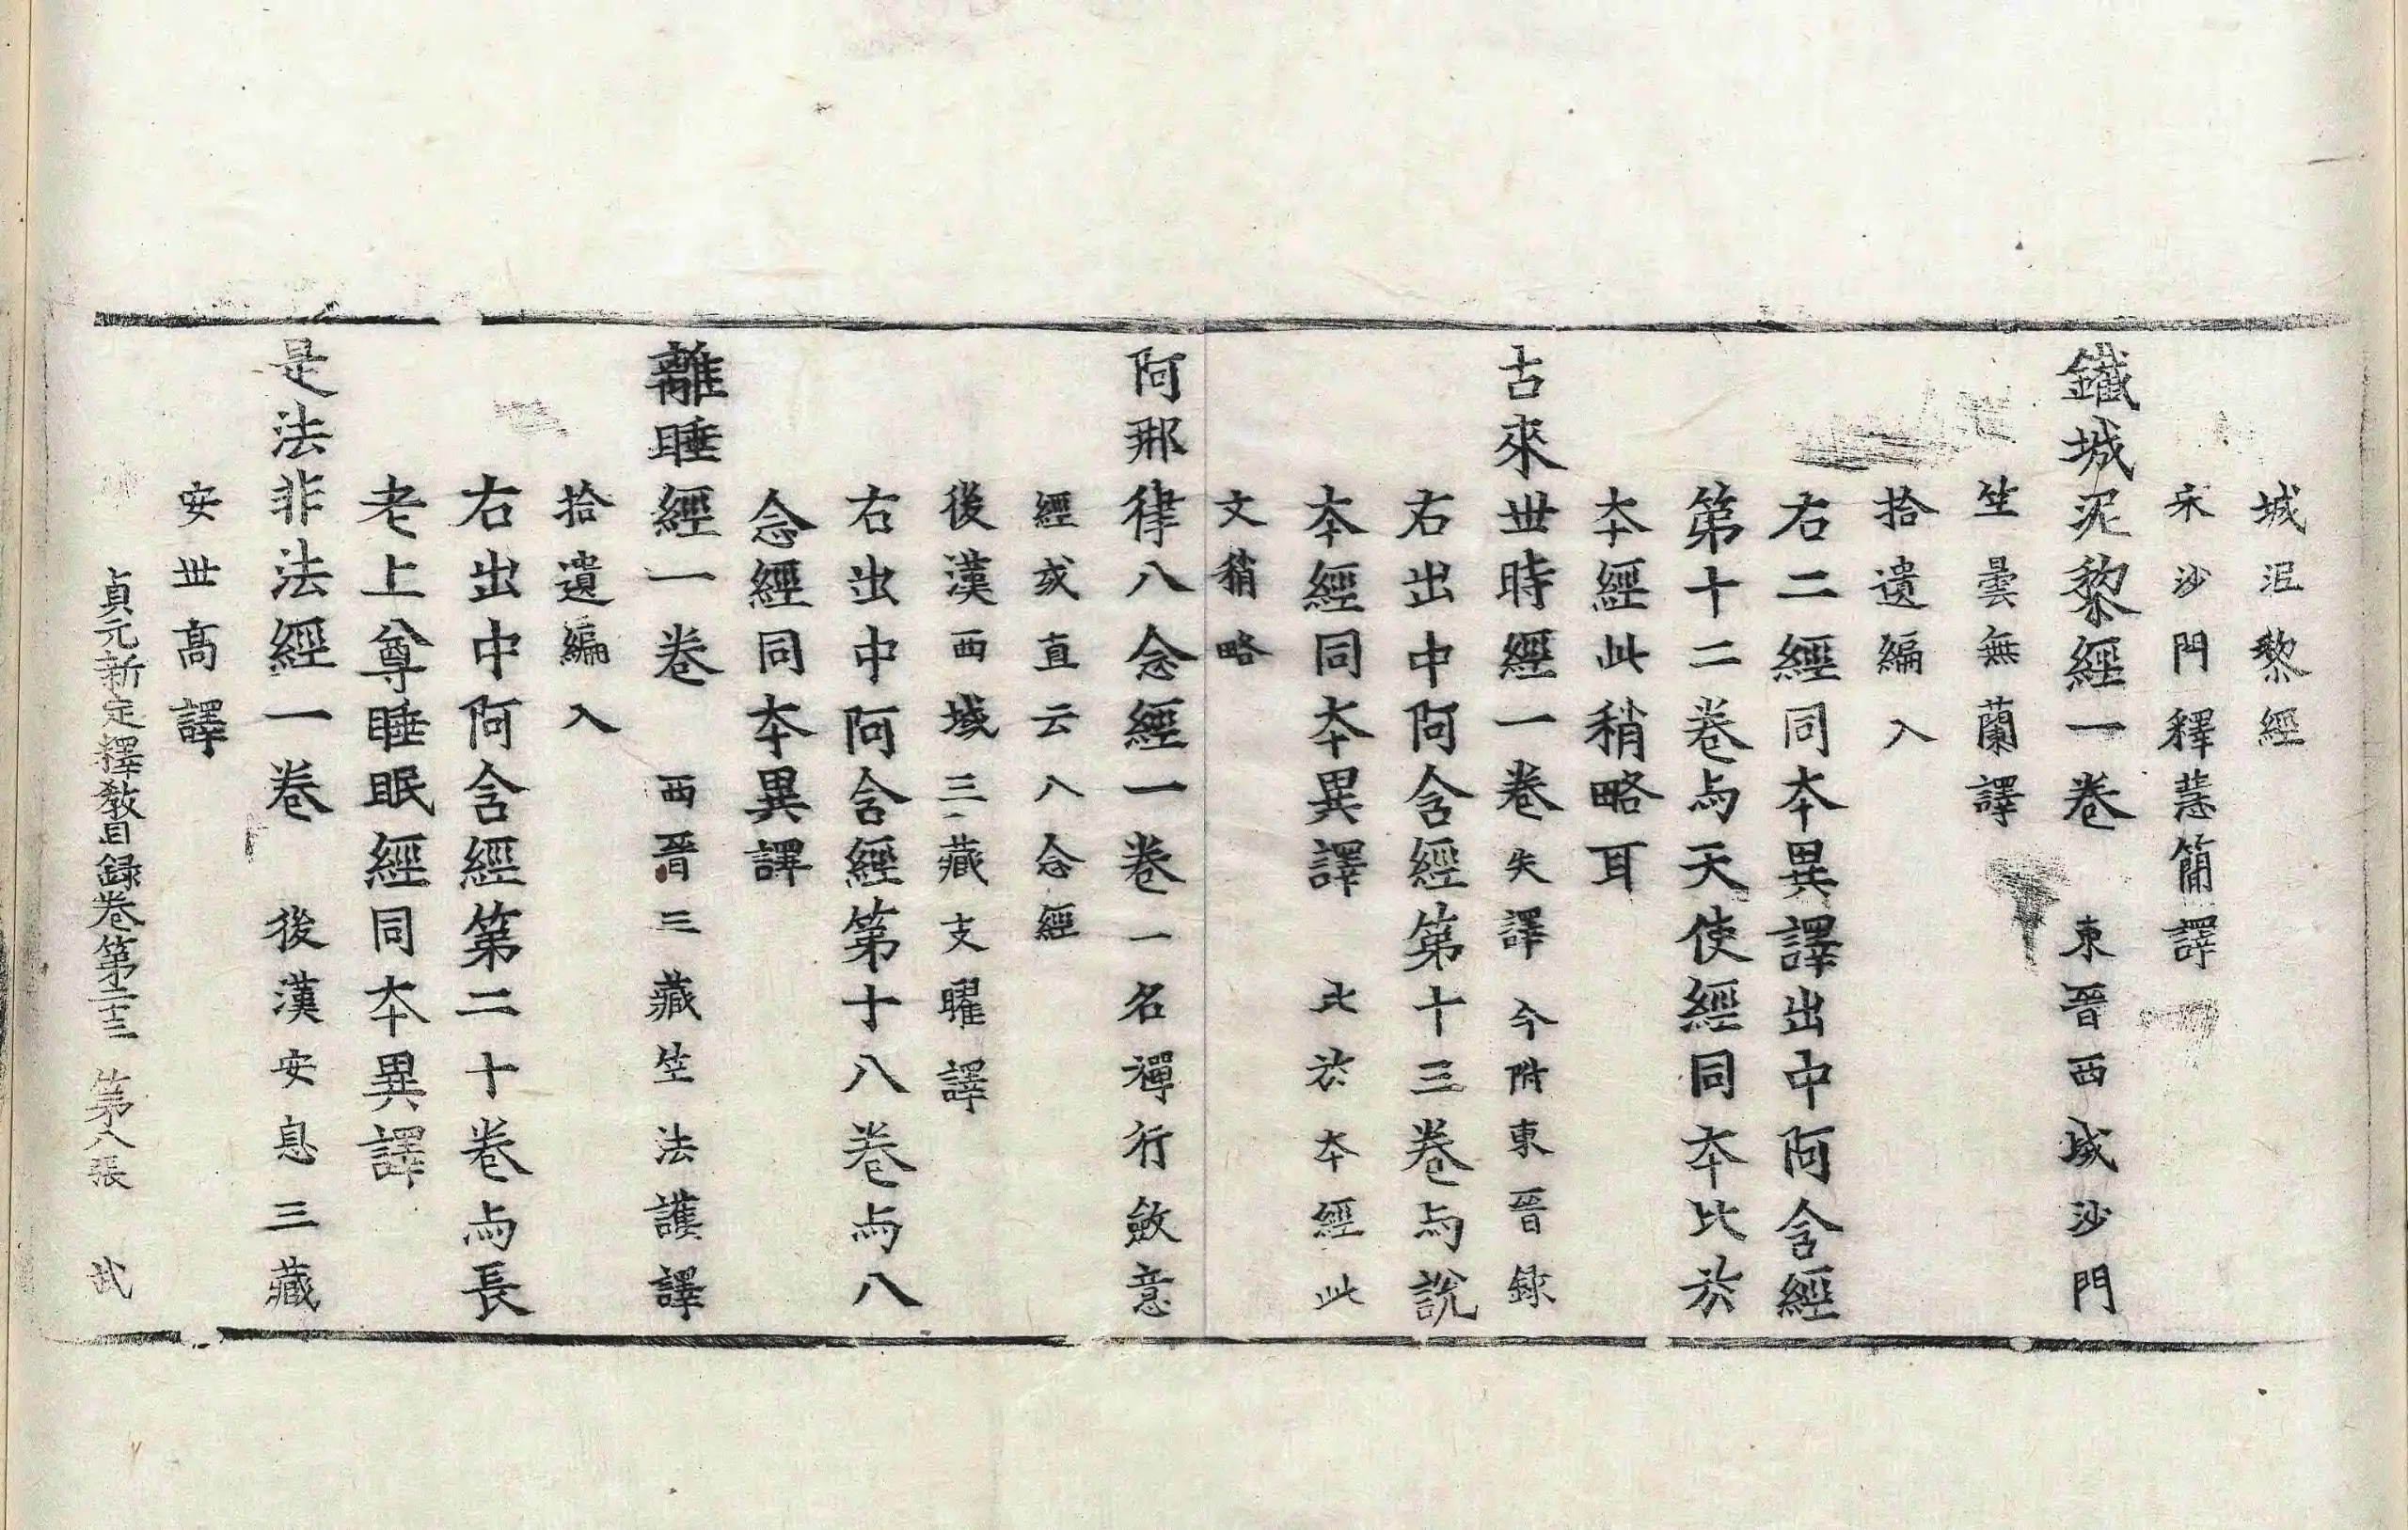 城泥黎經
宋沙門釋慧簡譯
鐵城泥黎經一卷 東晉西域沙門
竺曇無蘭譯
拾遺編入
右二經同本異譯出中阿含經
第十二卷与天使經同本比於
本經此稍略耳
古來世時經一卷失譯今附東晉録
右出中阿含經第十三卷与說
本經同本異譯 比於本經此
文稍略
阿那律八念經一卷一名禪行斂意
經或直云八念經
後漢西域三藏支曜譯
右出中阿含經第十八卷与八
念經同本異譯
離睡經一卷 西晉三藏竺法護譯
拾遺編入
右出中阿含經第二十卷与長
老上尊睡眠經同本異譯
是法非法經一卷 後漢安息三藏
安世高譯
貞元新定釋教目録卷第三十三 第八張 武